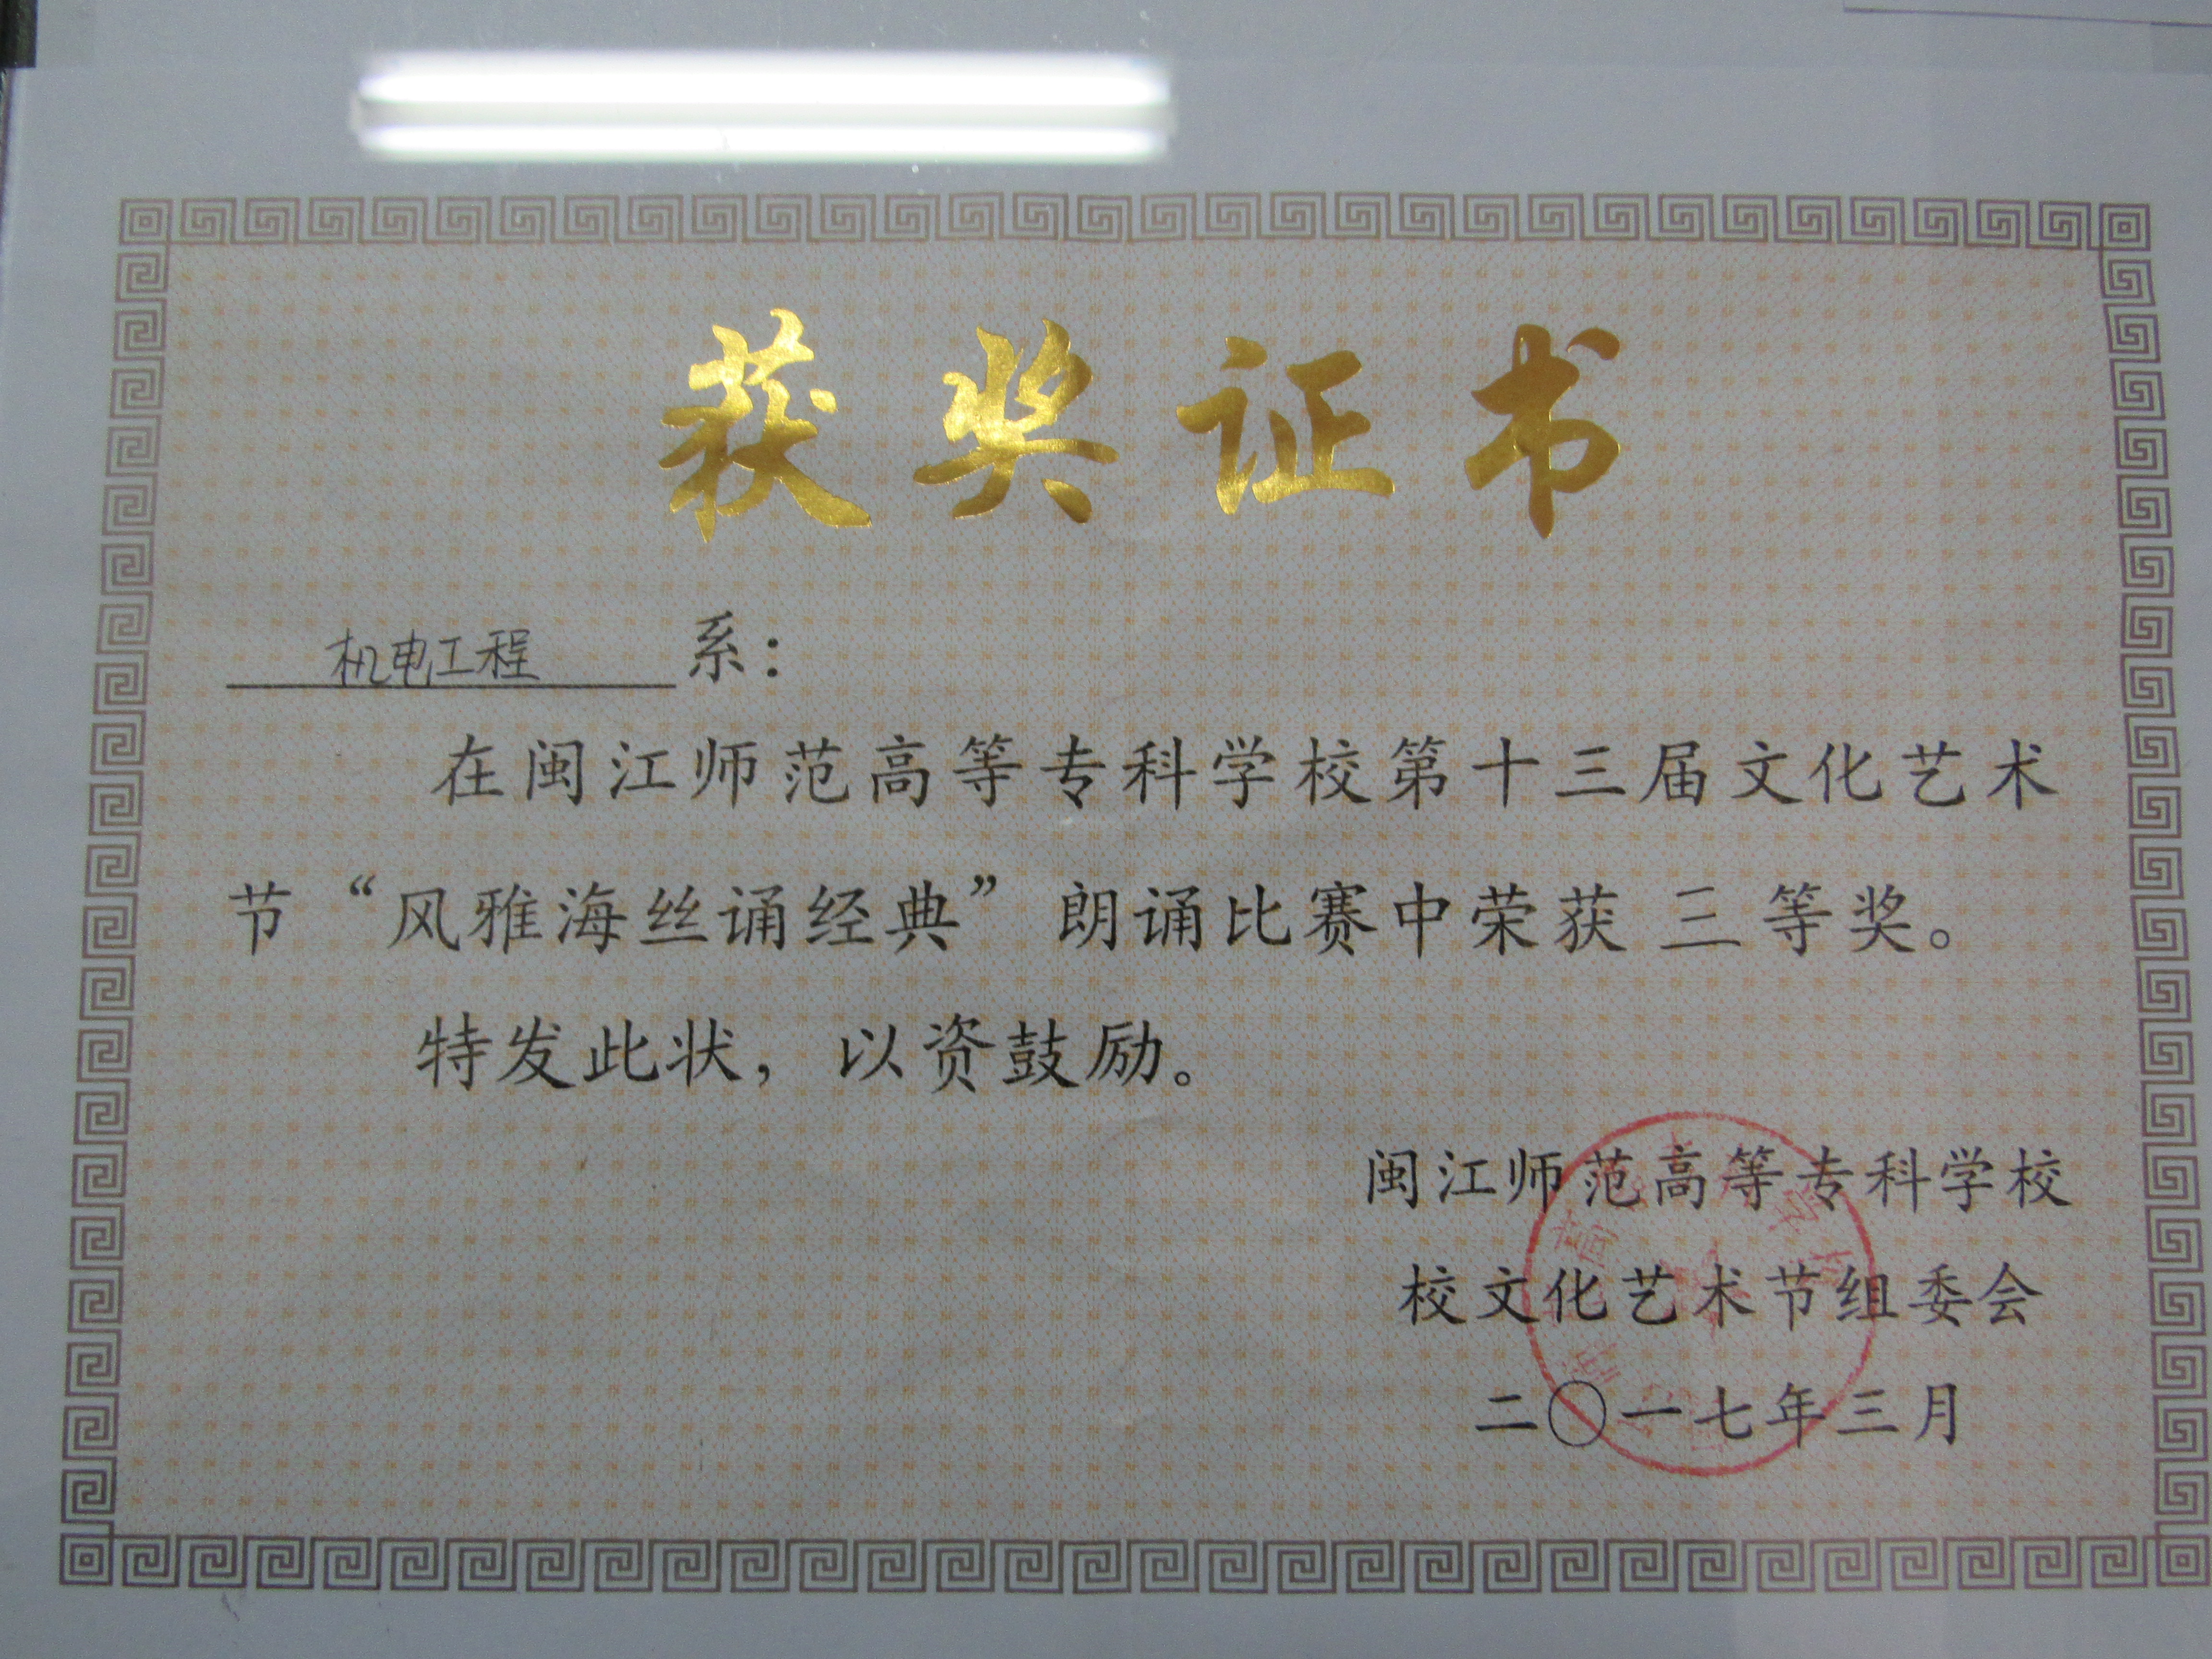 获奖证书
机电工程系：
在闽江师范高等专科学校第十三届文化艺术
节“风雅海丝诵经典”朗诵比赛中荣获三等奖。
特发此状，以资鼓励。
闽江师范高等专科学校
校文化艺术节组委会
二〇一七年三月